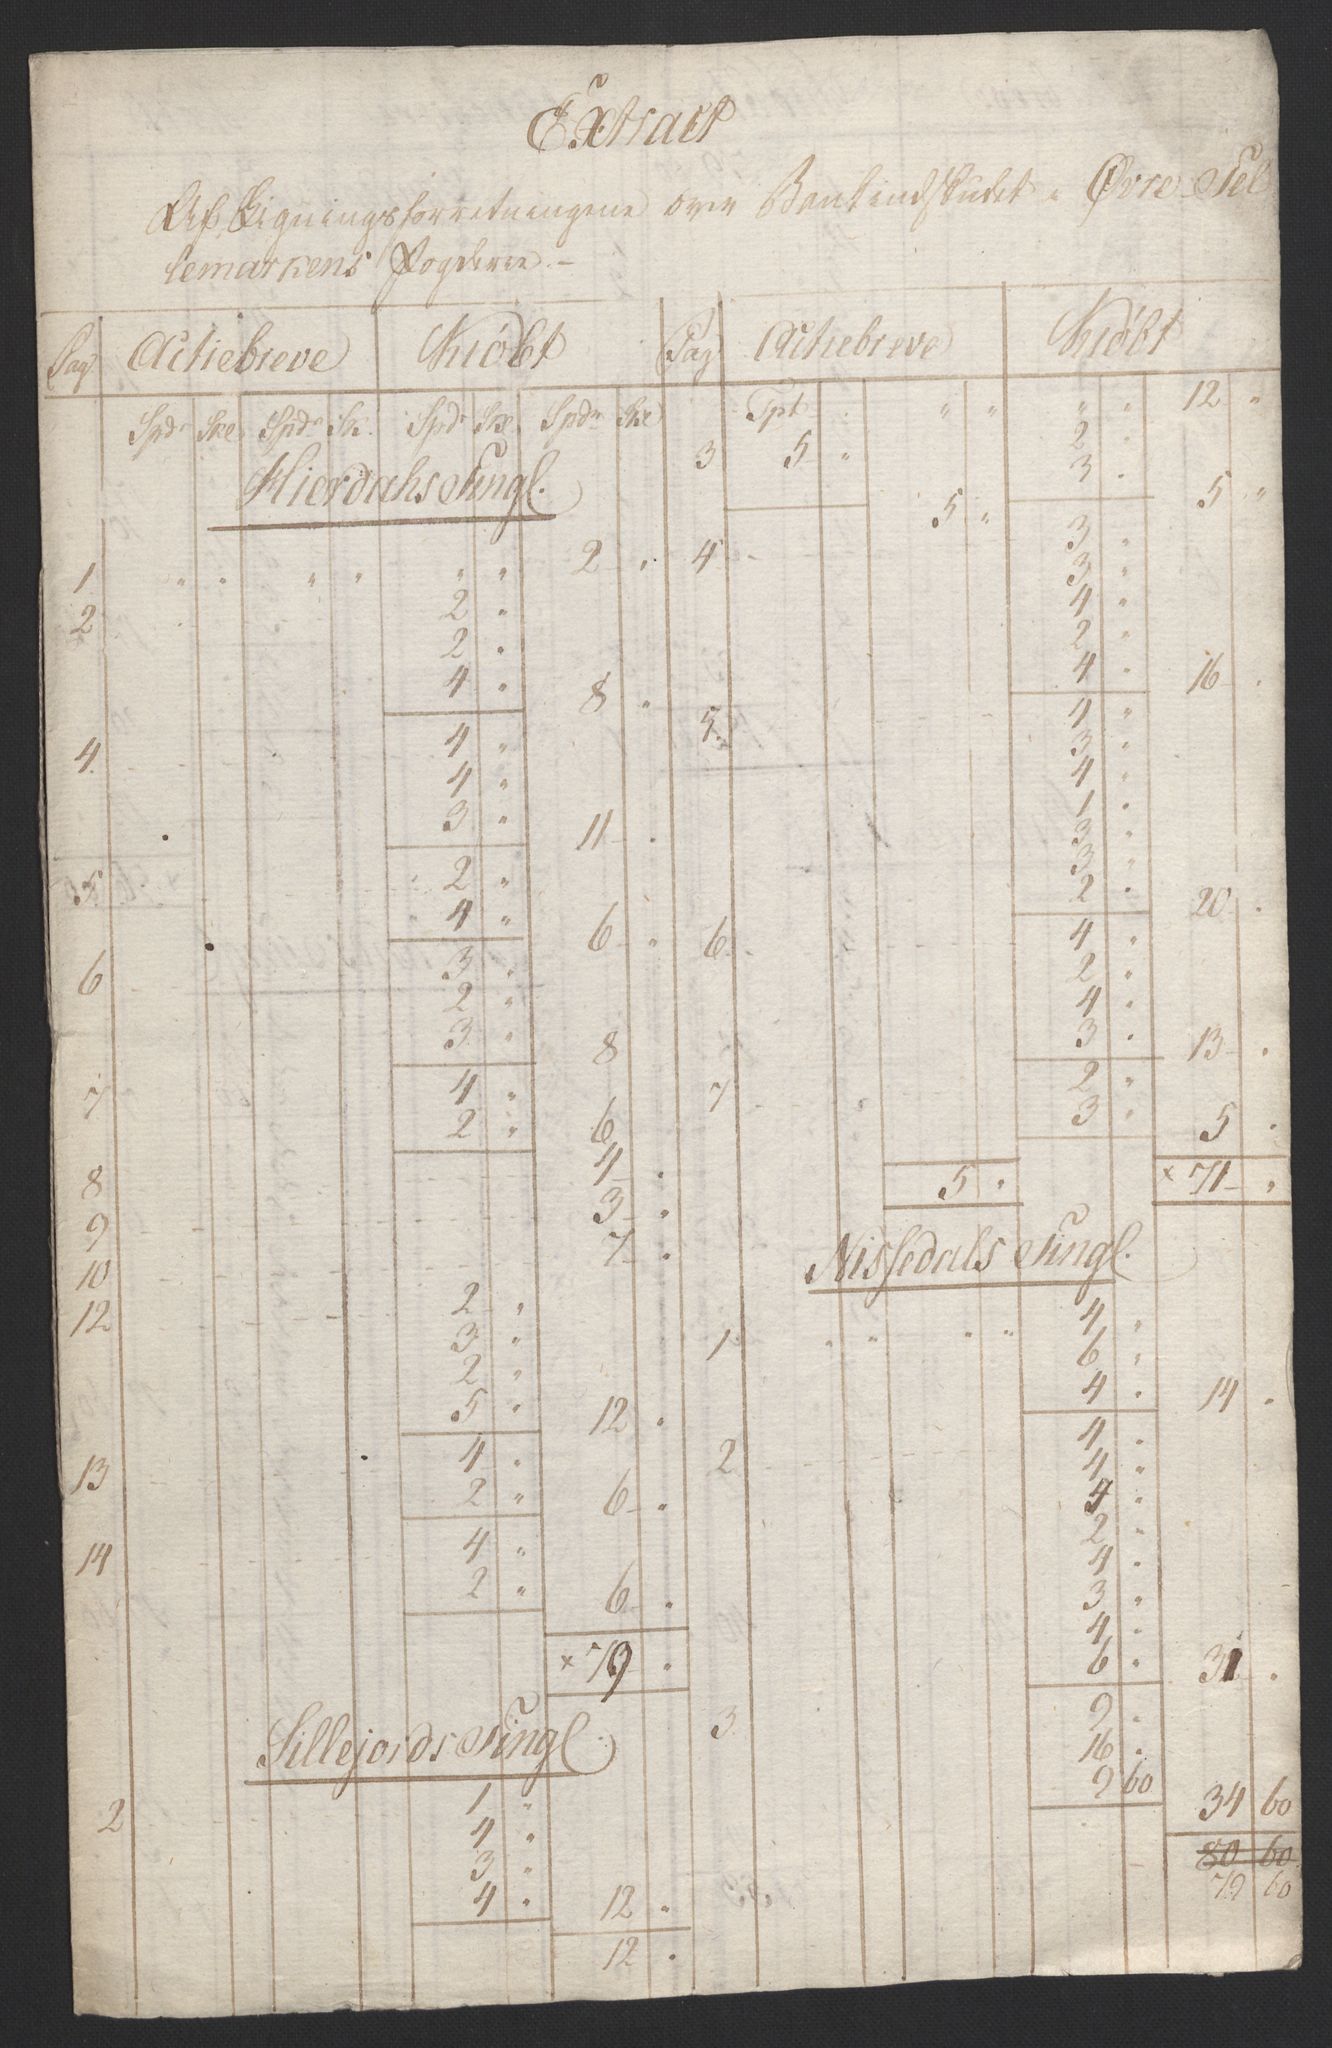 Extract
Af Ligningsforretningene over Bankindskudet i Øvre Tel
lemarkens Fogderie. –
Pag Actiebreve Kiøbt
Spdr Ske Spdr Sk. Spdr Ske Spdr Ske
Hierdahs Tingl.
1 " " " " " " 2 "
2 2 "
2 "
4 " 8 "
4. 4 "
4 "
3 " 11 "
5. 2 "
4 " 6 "
6 3 "
2 "
3 " 8
7 4 "
2 " 6
8 4 "
9 3 "
10 7 "
12 2 "
3 "
2 "
5 " 12 "
13 4 "
2 " 6 "
14 4 "
2 " 6 "
x 79 "
Sillejords Tingl.
2 1 "
4 "
3 "
4 " 12 "
12 "
Pag Actiebreve Kiøbt
Tpt " " " " 12 "
3 5 " 2 "
3 "
5 " 5 "
4 3 "
3 "
4 "
2 "
4 " 16 "
5. 4 "
3 "
4 "
1 "
3 "
3 "
2 " 20 "
6 4 "
2 "
4 "
3 " 13 "
7 2 "
3 " 5 "
5 " x 71 "
Nissedals Tingl.
1 " " " " 4 "
6 "
4 " 14 "
2 4 "
4 "
4 "
2 "
4 "
3 "
4 "
6 " 31 "
3 9 "
16 "
9 60 34 60
80 60
79 60